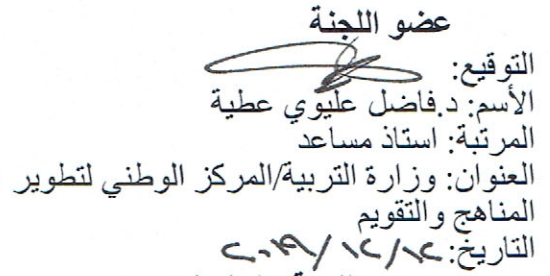 عضو اللجنة
التوقيع:
الأسم: د.فاضل عليوي عطية
المرتبة: استاذ مساعد
العنوان: وزارة التربية/المركز الوطني لتطوير
المناهج والتقويم
التاريخ: ٢٠١٩/١٢/١٢